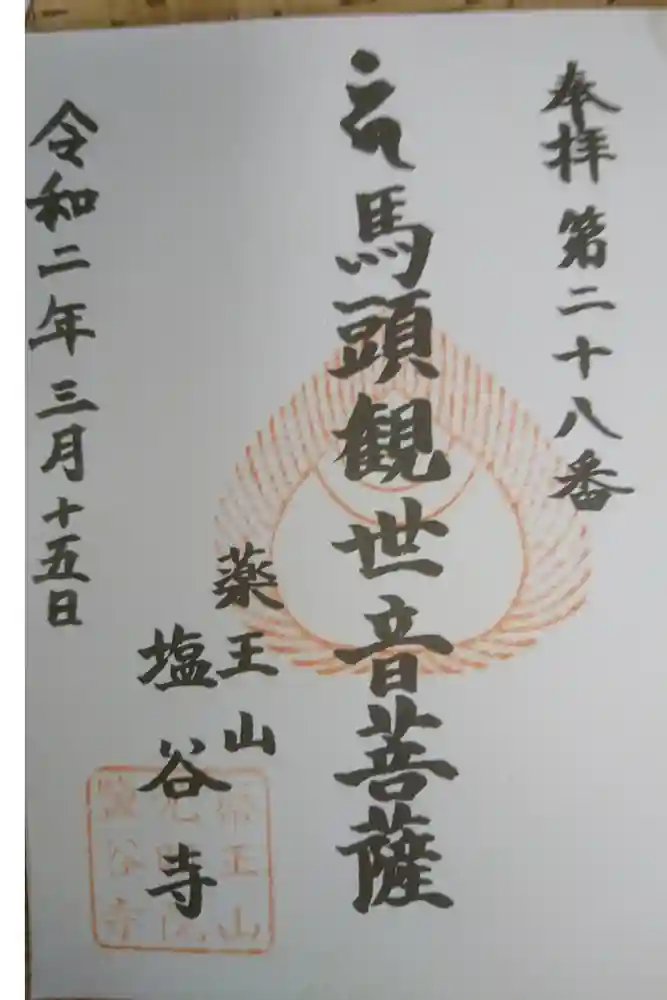 奉拝 第二十八番
馬頭観世音菩薩
薬王山
塩谷寺
令和二年三月十五日